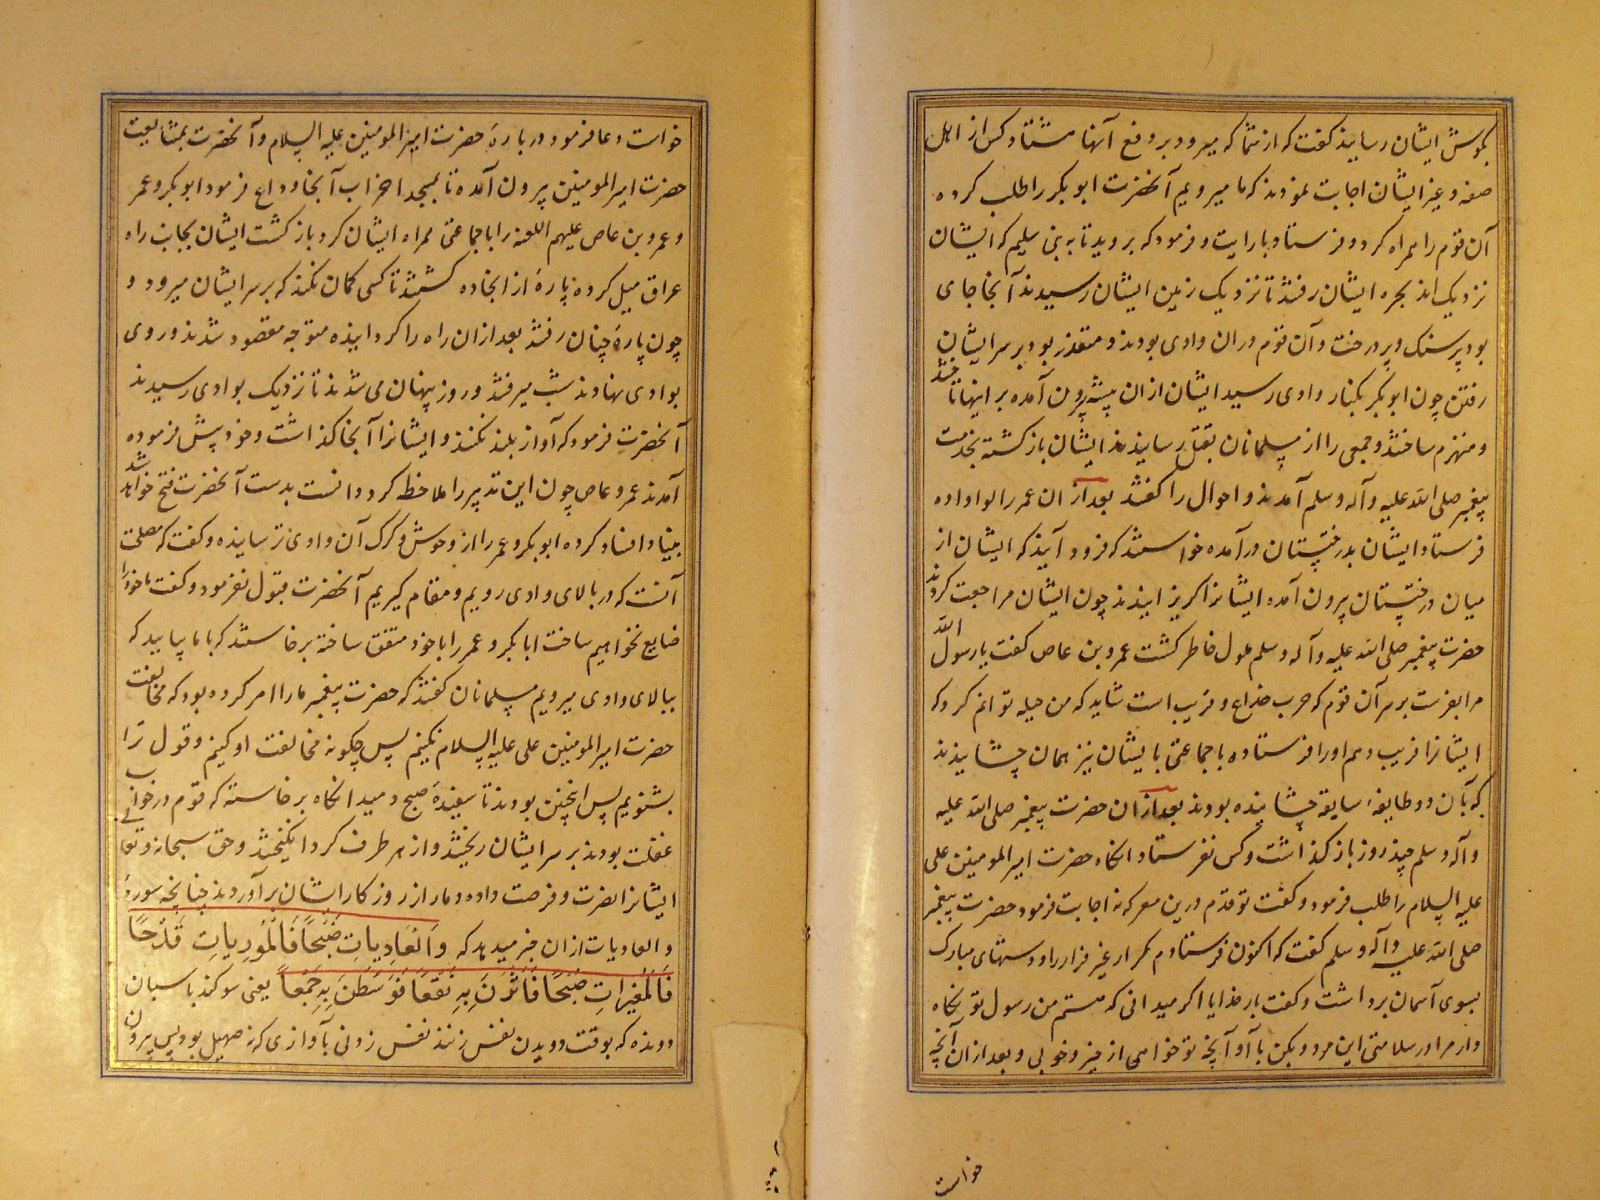 بگوش ایشان رسانید گفت که از شما که میرود بر دفع آنها هشتاد کس از اهل
صفه و غیر ایشان اجابت نمودند که ما میرویم آنحضرت ابو بکر را طلب کرده
آن قوم را همراه کرد و فرستاد با رایت و فرمود که بروید تا به بنی سلیم که ایشان
نزدیک اند بحره ایشان رفتند تا نزدیک زمین ایشان رسیدند آنجا جای
بود پر سنک و پر درخت و آن قوم در ان وادی بودند و متعذر بود بر سر ایشان
رفتن چون ابو بکر بکنار وادی رسید ایشان از ان بیشه بیرون آمده بر اینها تاختند
و منهزم ساختند و جمعی را از مسلمانان بقتل رسانیدند ایشان باز کشته بخدمت
پیغمبر صلی الله علیه و آله و سلم آمدند و احوال را گفتند بعد از ان عمر را لوا داده
فرستاد ایشان بدرختستان در آمده خواستند که فرود آیند که ایشان از
میان درختستان بیرون آمده ایشانرا کریزانیدند چون ایشان مراجعت کردند
حضرت پیغمبر صلی الله علیه و آله و سلم ملول خاطر کشت عمرو بن عاص گفت یا رسول الله
مرا بفرست بر سر آن قوم که حرب خداع و فریب است شاید که من حیله توانم کرد که
ایشانرا فریب دهم او را فرستاده با جماعتی بایشان نیز همان چشانیدند
که بآن دو طایفه سابقه چشانیده بودند بعد از ان حضرت پیغمبر صلی الله علیه
و آله و سلم چند روز باز کذاشت و کس نفرستاد انکاه حضرت امیر المومنین علی
علیه السلام را طلب فرمود و گفت تو قدم درین معرکه نه اجابت فرمود حضرت پیغمبر
صلی الله علیه و آله و سلم گفت که اکنون فرستادم کرار غیر فرار را و دستهای مبارک
بسوی آسمان برداشت و گفت بار خدایا اکر میدانی که هستم من رسول تو نکاه
دار مرا در سلامتی این مرد و بکن با او آنچه تو خواهی از خیر و خوبی و بعد از ان آنچه
خواست
خواست دعا فرمود در بارهٔ حضرت امیر المومنین علیه السلام و آنحضرت بمشایعت
حضرت امیر المومنین بیرون آمده تا بمسجد احزاب آنجا وداع فرمود ابو بکر و عمر
و عمرو بن عاص علیهم اللعنه را با جماعتی همراه ایشان کرد باز کشت ایشان بجانب راه
عراق میل کرده پارهٔ از انجاده کشتند تا کسی کمان نکند که بر سر ایشان میرود و
چون پارهٔ چنان رفتند بعد از ان راه را کردانیده متوجه مقصود شدند و روی
بوادی نهادند شب میرفتند و روز پنهان می شدند تا نزدیک بوادی رسیدند
آنحضرت فرمود که آواز بلند نکنند و ایشانرا آنجا کذاشت و خود پیش فرموده
آمدند عمرو عاص چون این تدبیر را ملاحظه کرد دانست بدست آنحضرت فتح خواهد شد
بنیاد افساد کرده ابو بکر و عمر را از وحوش و کرک آن وادی ترسانیده و گفت که مصلحت
آنست که در بالای وادی رویم و مقام کیریم آنحضرت قبول نفرمود و گفت ما خود را
ضایع نخواهیم ساخت ابا بکر و عمر را با خود متفق ساخته برخاستند که با ما بیایید که
ببالای وادی میرویم مسلمانان گفتند که حضرت پیغمبر ما را امر کرده بود که مخالفت
حضرت امیر المومنین علی علیه السلام نکنیم پس چکونه مخالفت او کنیم و قول ترا
بشنویم پس اینچنین بودند تا سفیدهٔ صبح دمید انکاه برخاسته که قوم در خواب
غفلت بودند بر سر ایشان ریختند و از هر طرف کرد انکیختند و حق سبحانه و تعالی
ایشانرا نصرت و فرصت داده دمار از روزکار ایشان برآوردند چنانچه سورهٔ
و العادیات از ان خبر میدهد که وَالْعَادِیاتِ ضَبْحًا فَالْمُورِیاتِ قَدْحًا
فَالْمُغِیرَاتِ صُبْحًا فَاَثَرْنَ بِهِ نَقْعًا فَوَسَطْنَ بِهِ جَمْعًا یعنی سوکند باسبان
دونده که بوقت دویدن نفس زنند نفس زدنی بآوازی که نه صهیل بود پس بیرون